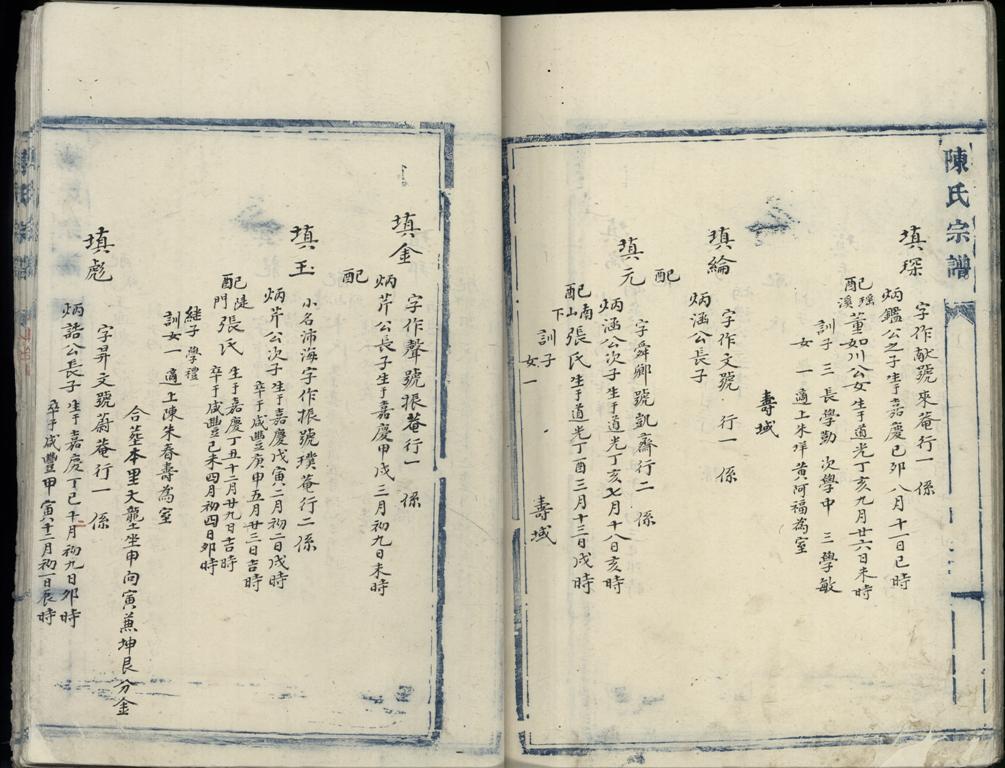 陳氏宗譜
填琛
字作献號來菴行一係
炳鑑公之子生于嘉慶己夘八月十一日巳時
配瑤溪董如川公女生于道光丁亥九月廿六日未時
訓子三長學勤次學中三學敏
女一適上朱垟黄阿福為室
壽域
填綸
字作文號行一係
炳涵公長子
配
填元
字舜卿號凱齋行二係
炳涵公次子生于道光丁亥七月十八日亥時
配南山下張氏生于道光丁酉三月十三日戌時
訓子
女一
壽域
填金
字作聲號振菴行一係
炳芹公長子生于嘉慶甲戌三月初九日未時
配
填玉
小名沛海字作振號璞菴行二係
炳芹公次子生于嘉慶戊寅二月初二日戌時
卒于咸豐庚申五月廿三日吉時
配陡門張氏生于嘉慶丁丑十二月廿九日吉時
卒于咸豐己未四月初四日夘時
継子學禮
訓女一適上陳朱春壽為室
合塟本里大龍坐申向寅兼坤艮分金
填彪
字昇文號蔚菴行一係
炳誥公長子生于嘉慶丁巳十二月初九日夘時
卒于咸豐甲寅十二月初一日辰時